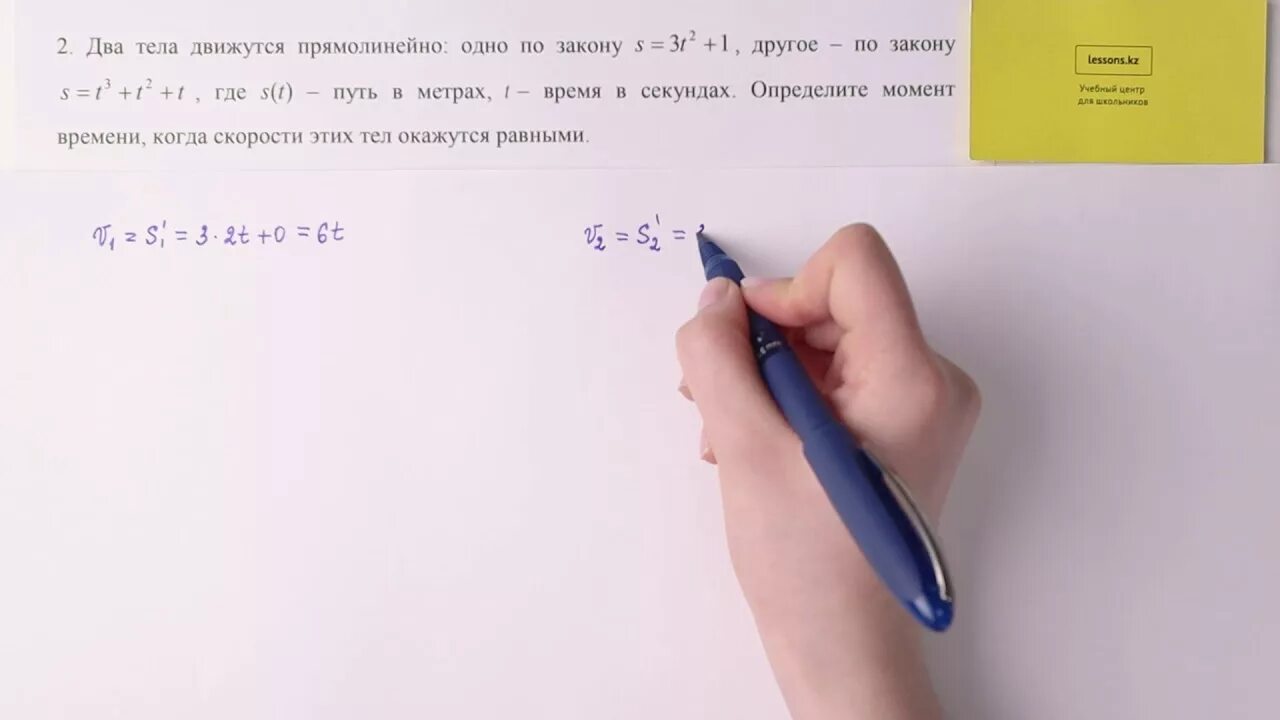 2. Два тела движутся прямолинейно: одно по закону s = 3t² + 1, другое – по закону
s = t³ + t² + t , где s(t) – путь в метрах, t – время в секундах. Определите момент
времени, когда скорости этих тел окажутся равными.
lessons.kz
Учебный центр
для школьников
v₁ = S₁' = 3 · 2t + 0 = 6t
v₂ = S₂' =